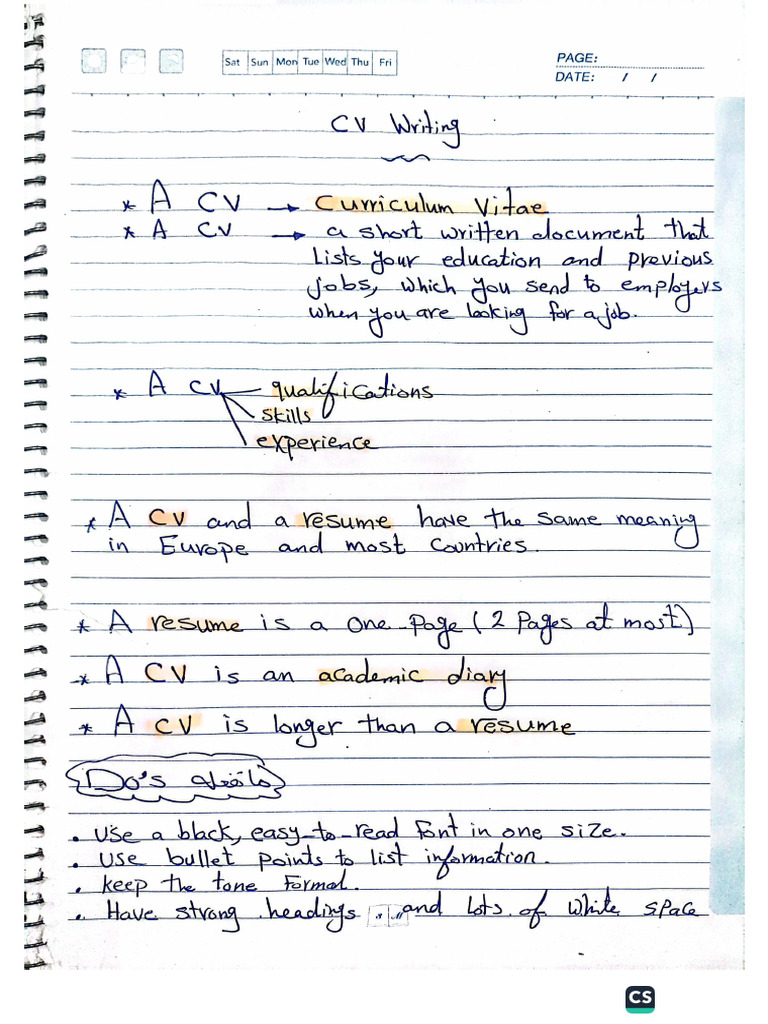 Sat Sun Mon Tue Wed Thu Fri
PAGE:
DATE: / /
CV Writing
* A CV → Curriculum Vitae
* A CV → a short written document that
lists your education and previous
jobs, which you send to employers
when you are looking for a job.
* A CV qualifications
skills
experience
* A CV and a resume have the same meaning
in Europe and most Countries.
* A resume is a one-page (2 pages at most)
* A CV is an academic diary
* A CV is longer than a resume
Do's
• Use a black, easy-to-read font in one size.
• Use bullet points to list information.
• keep the tone formal.
• Have strong headings and lots of white space
CS